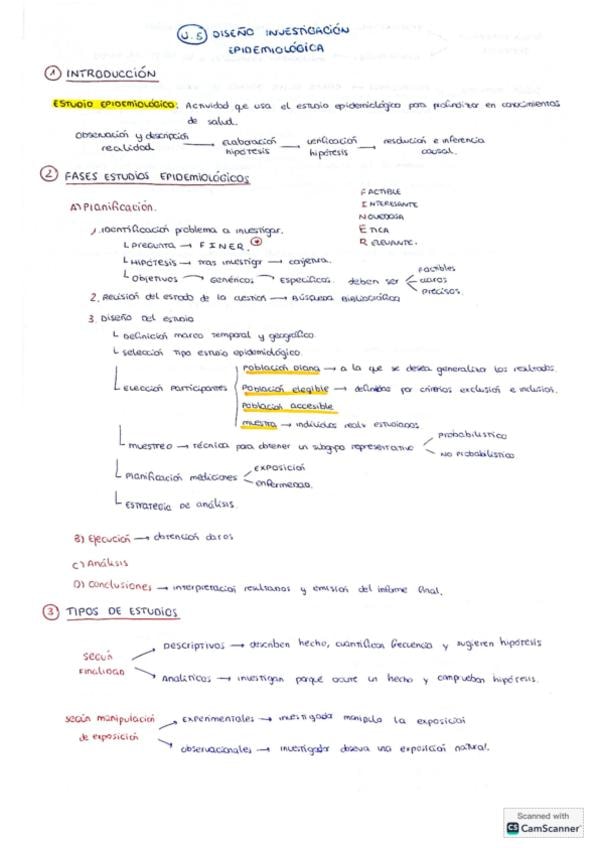 U.5 DISEÑO INVESTIGACIÓN
EPIDEMIOLÓGICA
1 INTRODUCCIÓN
ESTUDIO EPIDEMIOLÓGICO: Actividad que usa el estudio epidemiológico para profundizar en conocimientos
de salud.
Observación y descripción realidad → elaboración hipótesis → verificación hipótesis → resolución e inferencia causal.
2 FASES ESTUDIOS EPIDEMIOLÓGICOS
FACTIBLE
INTERESANTE
NOVEDOSA
ÉTICA
RELEVANTE.
A) Planificación.
1. Identificación problema a investigar.
Pregunta → FINER.
HIPÓTESIS → tras investigar → conjetura.
Objetivos → Genéricos → Específicos. deben ser factibles claros precisos.
2. Revisión del estado de la cuestión → Búsqueda Bibliográfica
3. Diseño del estudio
Definición marco temporal y geográfico.
Selección tipo estudio epidemiológico.
Elección participantes
Población diana → a la que se desea generalizar los resultados.
Población elegible → definidos por criterios exclusión e inclusión.
Población accesible
muestra → individuos reals estudiados.
muestreo → técnica para obtener un subgrupo representativo
Probabilístico
No Probabilístico
Planificación mediciones
exposición
enfermedad.
Estrategia de análisis.
B) Ejecución → obtención datos
C) Análisis
D) Conclusiones → interpretación resultados y emisión del informe final.
3 TIPOS DE ESTUDIOS
según finalidad
Descriptivos → describen hecho, cuantifican frecuencia y sugieren hipótesis
Analíticos → investigan porqué ocurre un hecho y comprueban hipótesis.
según manipulación de exposición
Experimentales → investigador manipula la exposición
observacionales → investigador observa una exposición natural.
Scanned with
CS CamScanner